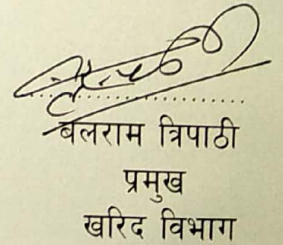 बलराम त्रिपाठी
प्रमुख
खरिद विभाग